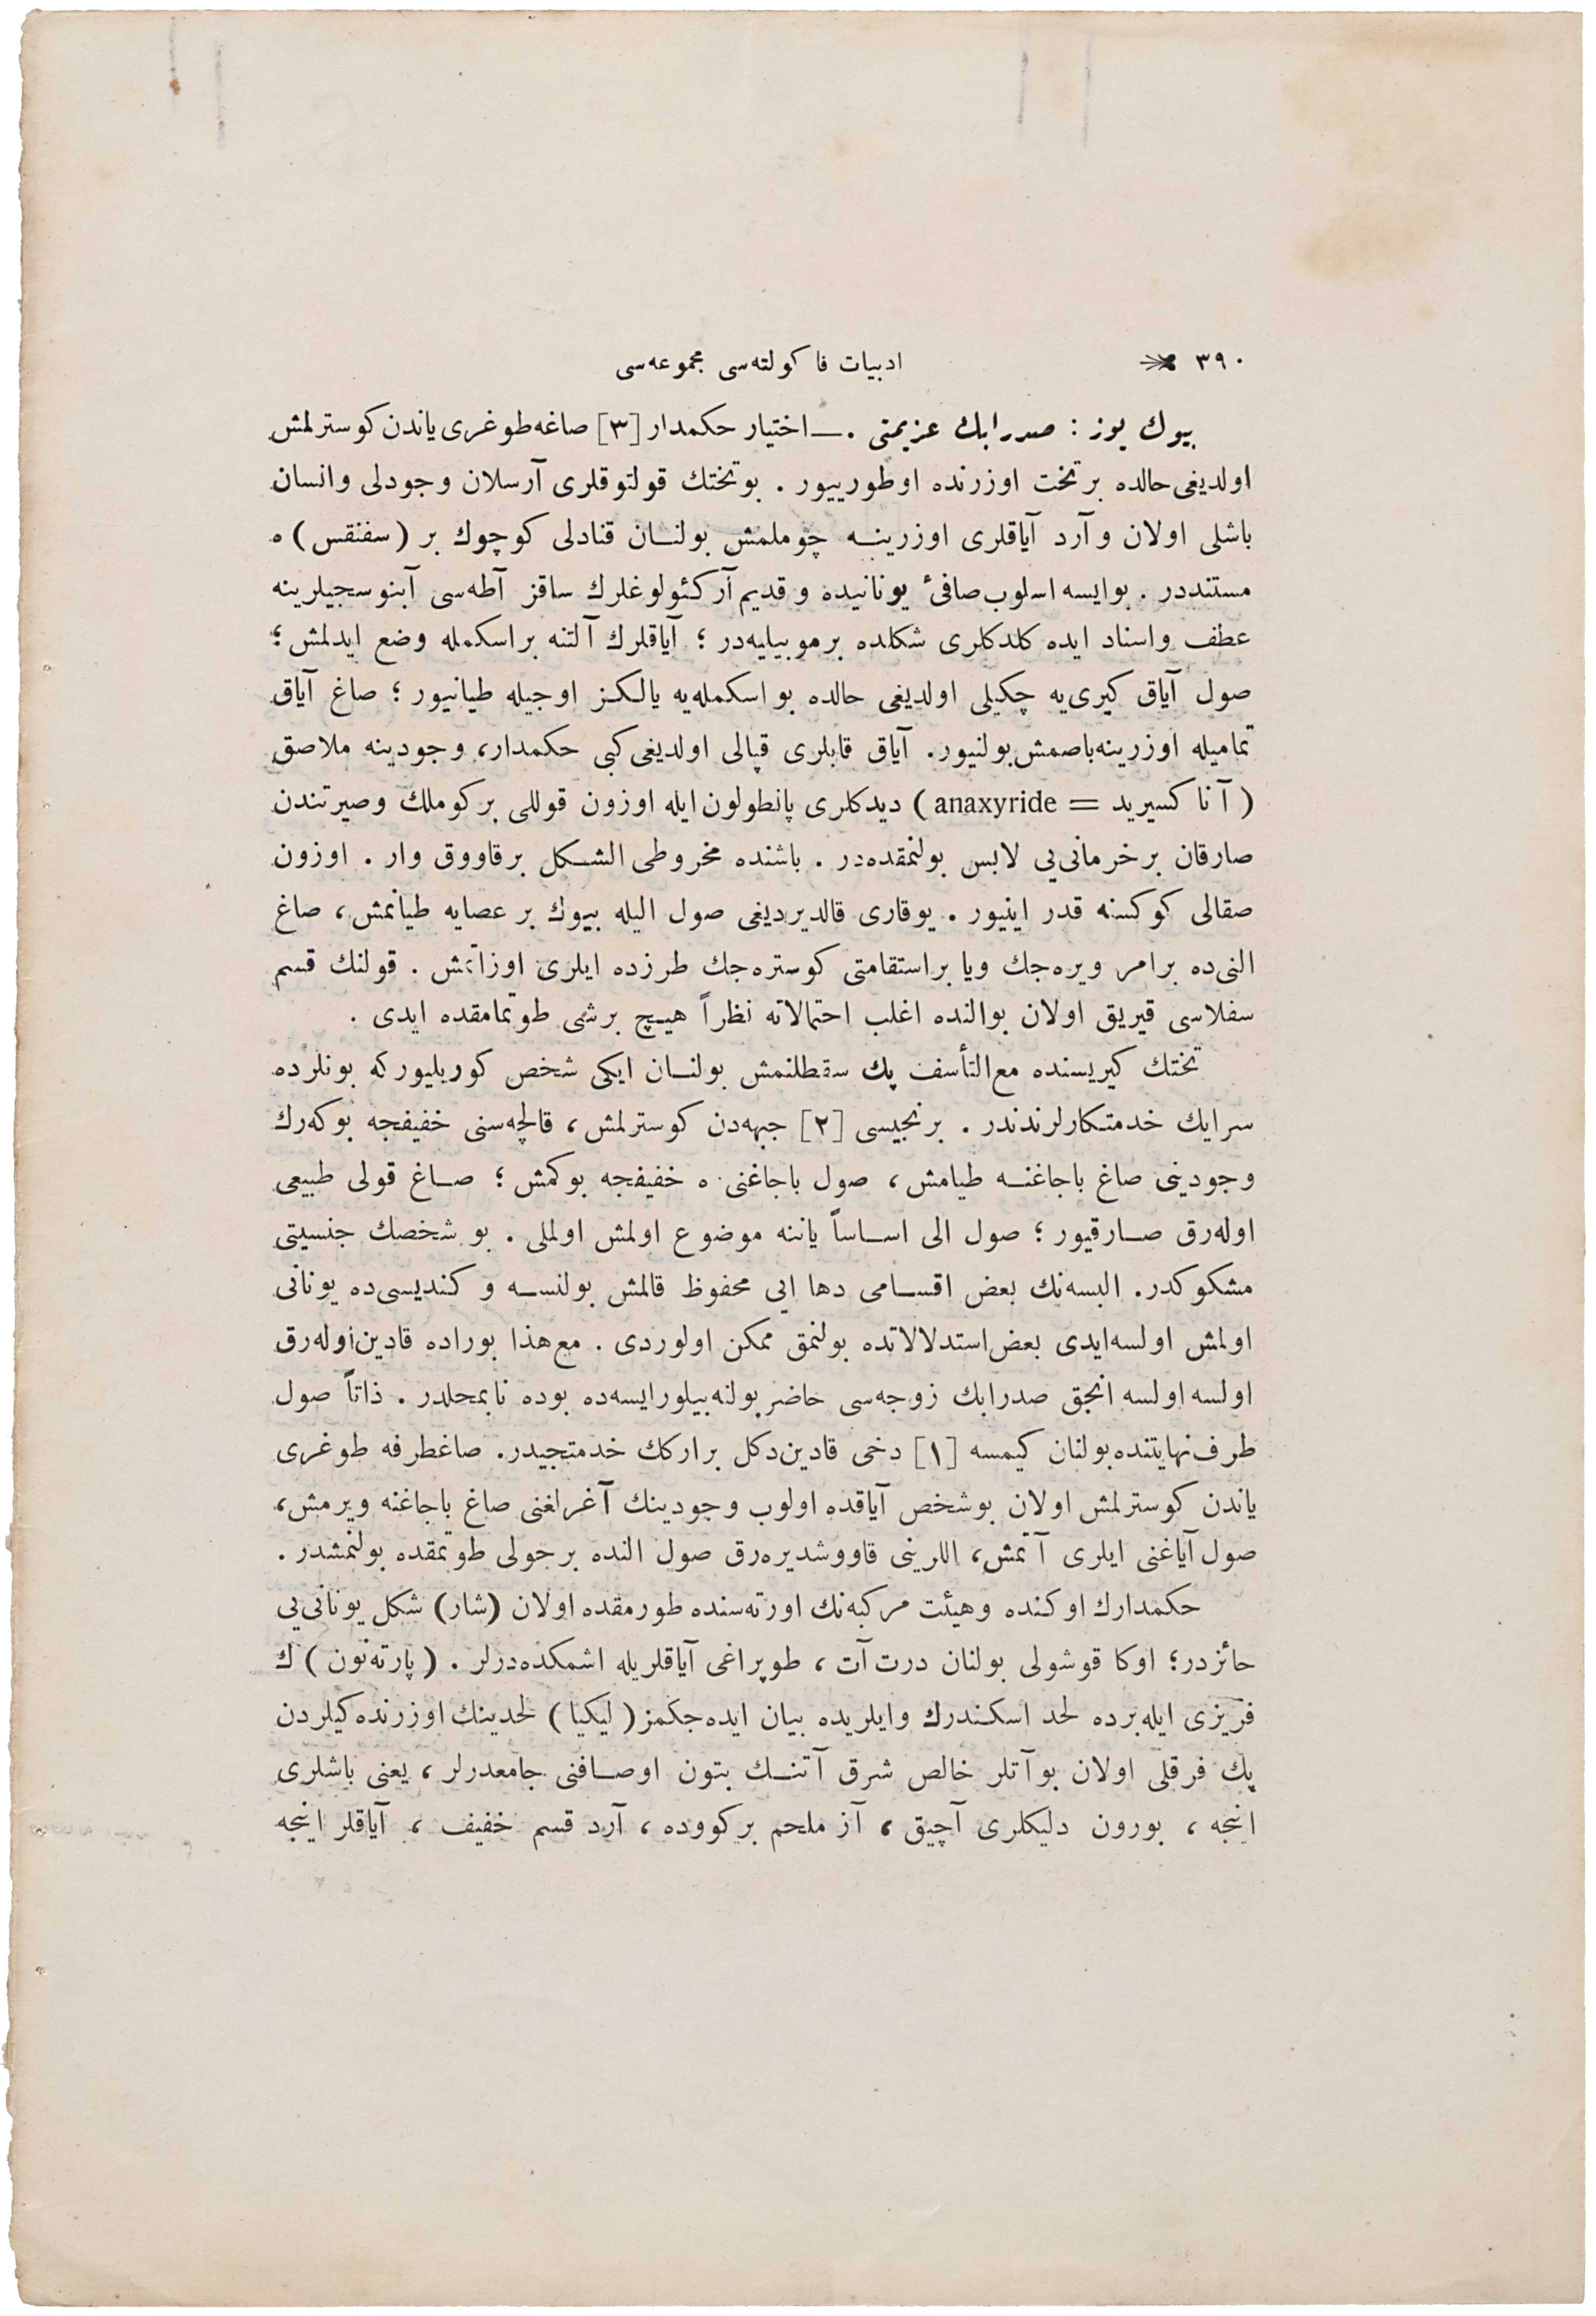 ٣٩٠ ادبیات فاكولته‌سی مجموعه‌سی
بیوك یوز : صدرابك عزیمتی . — اختیار حكمدار [٣] صاغه‌طوغری یاندن كوسترلمش
اولدیغی حالده بر تخت اوزرنده اوطورییور . بوتختك قولتوقلری آرسلان وجودلی وانسان
باشلی اولان و آرد آیاقلری اوزرینه چوملمش بولنان قنادلی كوچوك بر (سفنقس) ه
مستنددر . بوایسه اسلوب صافئ یونانیده و قدیم آركئولوغلرك ساقز آطه‌سی آبنوسجیلرینه
عطف واسناد ایده كلدكلری شكلده بر موبیلیه‌در ؛ آیاقلرك آلتنه بر اسكمله وضع ایدلمش ؛
صول آیاق كیری‌یه چكیلی اولدیغی حالده بو اسكمله‌یه یالكز اوجیله طیانیور ؛ صاغ آیاق
تمامیله اوزرینه باصمش بولنیور . آیاق قابلری قپالی اولدیغی كبی حكمدار، وجودینه ملاصق
( آناكسیرید = anaxyride ) دیدكلری پانطولون ایله اوزون قوللی بر كوملك وصیرتندن
صارقان بر خرمانی‌یی لابس بولنمقده‌در . باشنده مخروطی الشكل بر قاووق وار . اوزون
صقالی كوكسنه قدر اینیور . یوقاری قالدیردیغی صول الیله بیوك بر عصایه طیانمش، صاغ
النی‌ده بر امر ویره‌جك ویا بر استقامتی كوستره‌جك طرزده ایلری اوزاتمش . قولنك قسم
سفلاسی قیریق اولان بوالنده اغلب احتمالاته نظراً هیچ برشی طوتمامقده ایدی .
تختك كیریسنده مع التأسف پك سقطلنمش بولنان ایكی شخص كوریلیوركه بونلرده
سرایك خدمتكارلرندندر . برنجیسی [٢] جبهه‌دن كوسترلمش، قالچه‌سنی خفیفجه بوكه‌رك
وجودینی صاغ باجاغنه طیامش، صول باجاغنی ه خفیفجه بوكمش ؛ صاغ قولی طبیعی
اوله‌رق صارقیور ؛ صول الی اساساً یاننه موضوع اولمش اولملی . بو شخصك جنسیتی
مشكوكدر . البسه‌نك بعض اقسامی دها ایی محفوظ قالمش بولنسه و كندیسی‌ده یونانی
اولمش اولسه‌ایدی بعض استدلالاتده بولنمق ممكن اولوردی . مع‌هذا بوراده قادین اوله‌رق
اولسه اولسه انجق صدرابك زوجه‌سی حاضر بولنه‌بیلورایسه‌ده بوده نابمحلدر . ذاتاً صول
طرف نهایتنده بولنان كیمسه [١] دخی قادین دكل بر اركك خدمتجیدر . صاغطرفه طوغری
یاندن كوسترلمش اولان بوشخص آیاقده اولوب وجودینك آغرلغنی صاغ باجاغنه ویرمش،
صول آیاغنی ایلری آتمش، اللرینی قاووشدیره‌رق صول النده برحولی طوتمقده بولنمشدر .
حكمدارك اوكنده وهیئت مركبه‌نك اورته‌سنده طورمقده اولان (شار) شكل یونانی‌یی
حائزدر؛ اوكا قوشولی بولنان درت آت، طوپراغی آیاقلریله اشمكده‌درلر . (پارته‌نون) ك
فریزی ایله‌برده لحد اسكندرك وایلریده بیان ایده‌جكمز (لیكیا) لحدینك اوزرنده كیلردن
پك فرقلی اولان بوآتلر خالص شرق آتنك بتون اوصافنی جامعدرلر، یعنی باشلری
اینجه، بورون دلیكلری آچیق، آز ملحم بر كووده، آرد قسم خفیف، آیاقلر اینجه